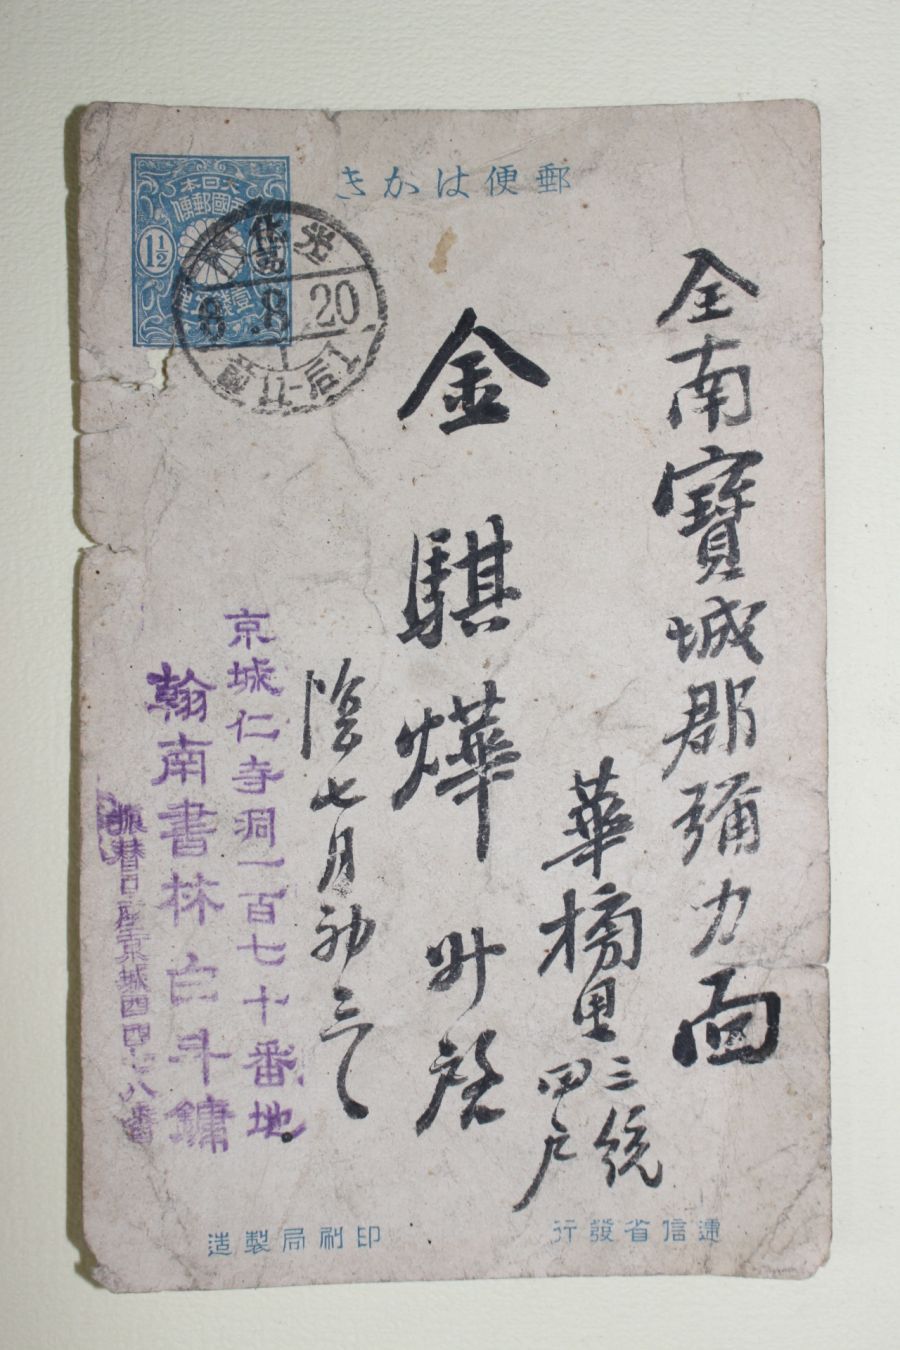 郵便はかき
大日本
帝國郵便
1½
壹錢五厘
光化門
8.8.20
全南寶城郡彌力面
華橋里三統
四戶
金騏燁
陰七月初三
京城仁寺洞一百七十番地
翰南書林白斗鏞
振替口座京城四四七八番
遞信省發行
印刷局製造